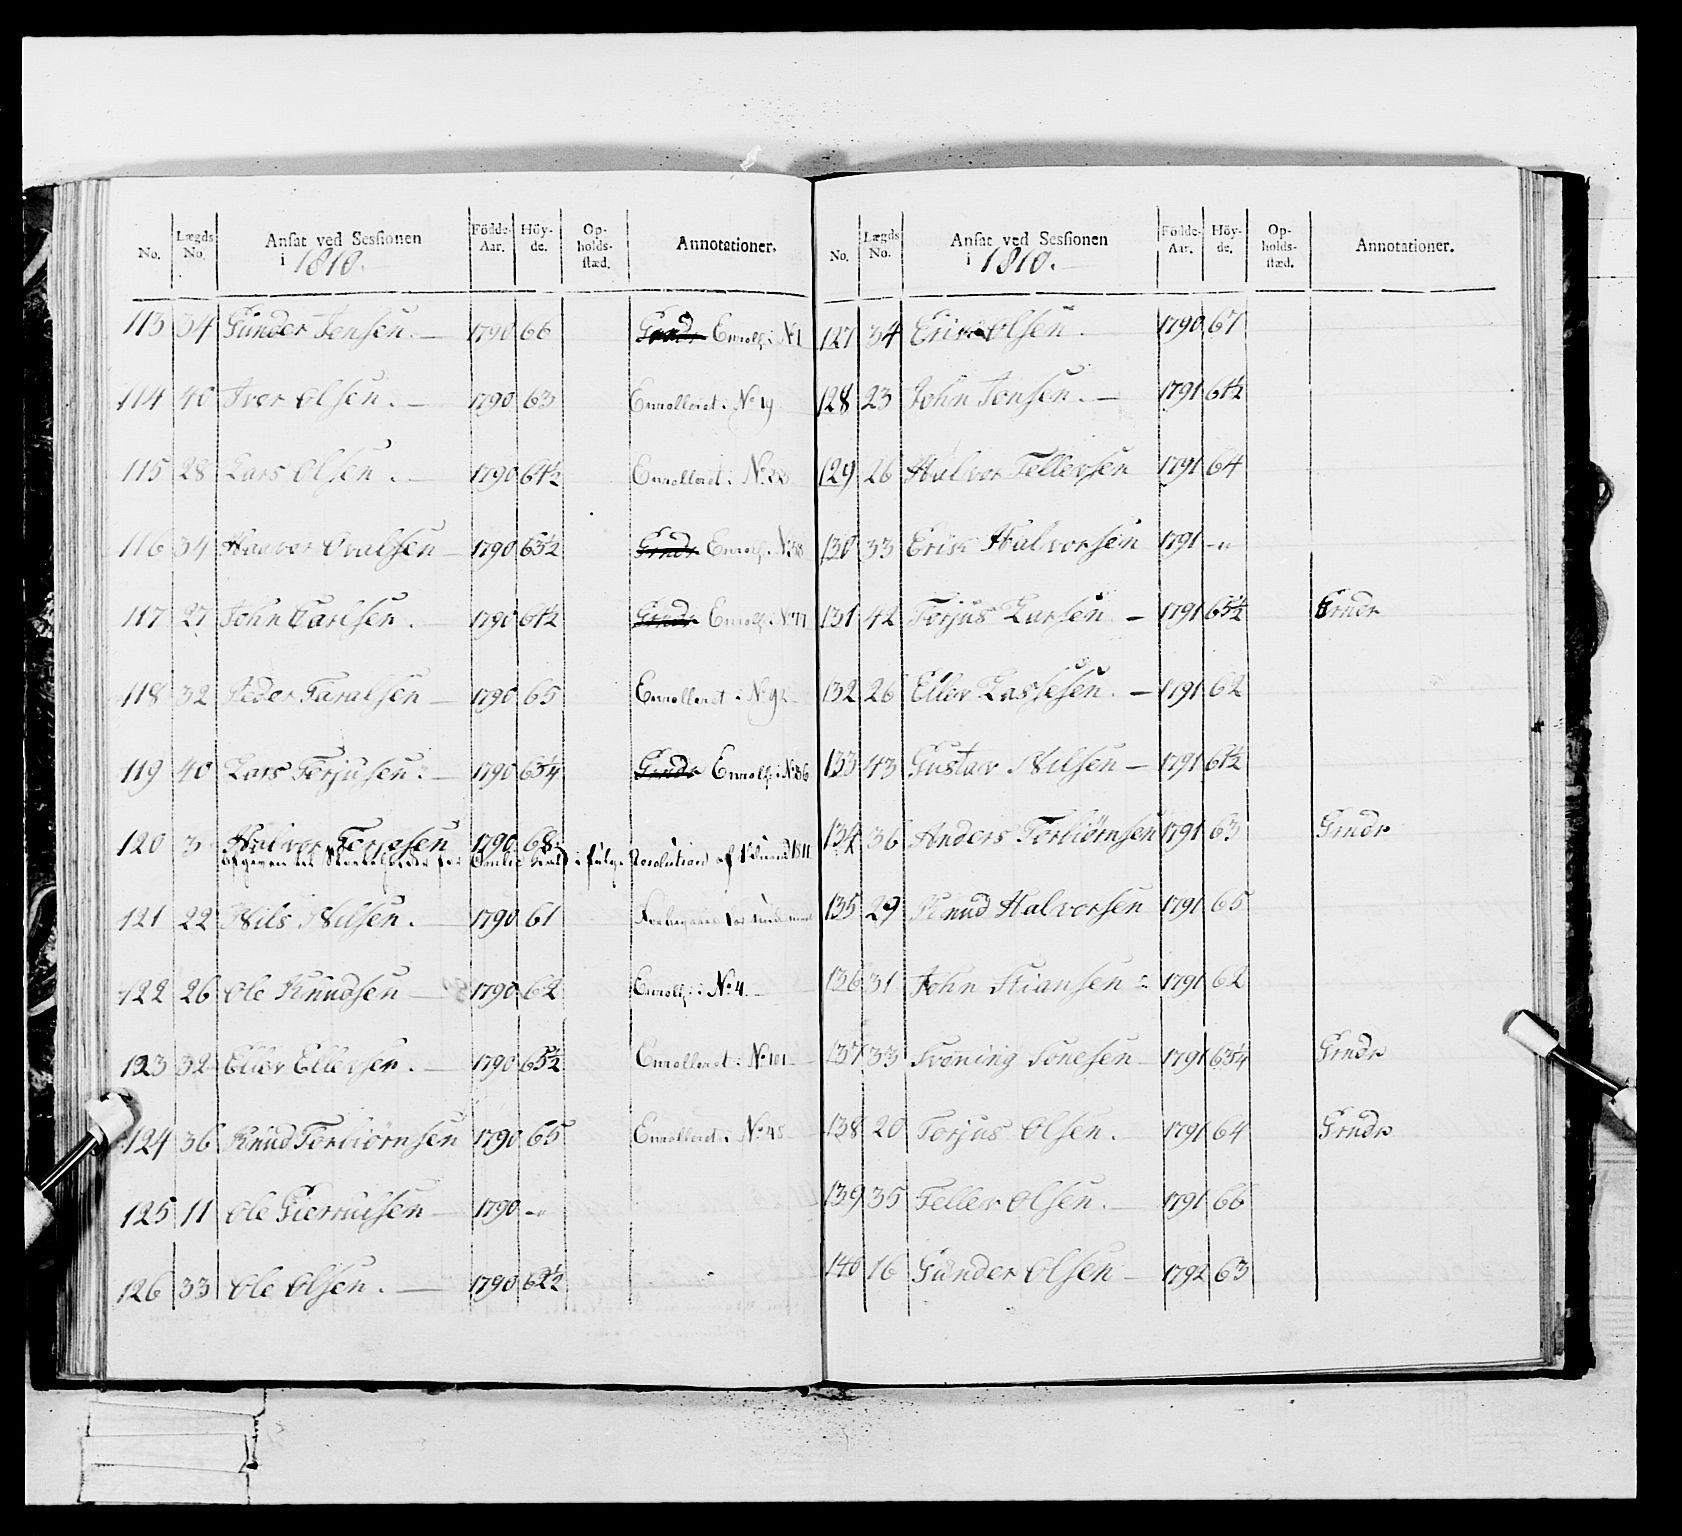 No. Lægds No. Ansat ved Sessionen i 1810. Födde-Aar. Höy-de. Op-holds-stæd. Annotationer.
113 34 Gunder Jensen. 1790 66 Grndr Enrolh: i No 1
114 40 Iver Olsen. 1790 63 Enrolleret i No 19
115 28 Lars Olsen. 1790 64½ Enrolleret i No 28
116 34 Haavor Ovalsen 1790 63½ Grndr Enrolh: i No 38
117 27 John Carlsen. 1790 61½ Grndr Enrolh: i No 77
118 32 Peder Taralsen 1790 65 Enrolleret i No 92
119 40 Lars Terjusen. 1790 63¼ Grndr Enrolh: i No 36
120 3 Halvor Terjesen 1790 68
afgiven til i følge Resolution af 1811
121 22 Nils Nilsen. 1790 61 for
122 26 Ole Knudsen 1790 62 Enrolh: i No 4.
123 32 Ellev Ellevsen. 1790 65½ Enrolleret i No 101
124 36 Knud Torbiörnsen 1790 65 Enrolleret i No 48
125 11 Ole Gierruldsen 1790 -"
126 33 Ole Olsen. 1790 62½
No. Lægds No. Ansat ved Sessionen i 1810. Födde-Aar. Höy-de. Op-holds-stæd. Annotationer.
127 34 Erik Olsen. 1790 67
128 23 John Jensen. 1791 61½
129 26 Halvor Tellevsen 1791 64
130 33 Erik Halvorsen 1791 -"
131 42 Terjus Larsen 1791 65½ Grndr
132 26 Ellev Lassesen. 1791 62
133 43 Gustav Nilsen 1791 61½
134 36 Anders Torbiörnsen 1791 63 Grndr
135 29 Knud Halvorsen 1791 65
136 31 John Stiansen 1791 62
137 33 Tröning Tonesen 1791 63¼ Grndr
138 20 Torjus Olsen. 1791 64 Grndr
139 35 Tellev Olsen. 1791 66
140 16 Gunder Olsen 1792 63